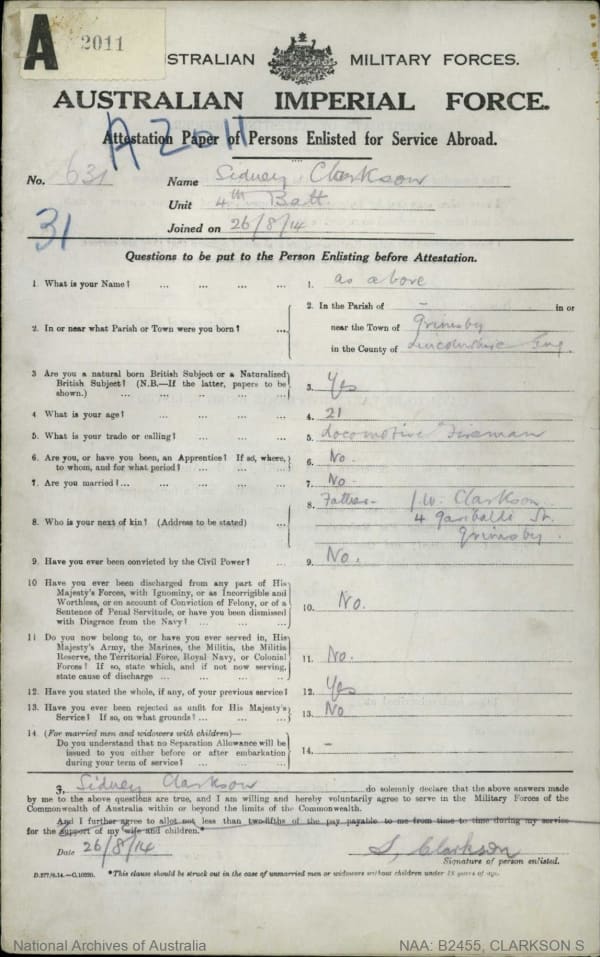 A 2011
AUSTRALIAN MILITARY FORCES.
AUSTRALIAN IMPERIAL FORCE.
A 2011
Attestation Paper of Persons Enlisted for Service Abroad.
No. 631 Name Sidney Clarkson
Unit 4th Batt
31 Joined on 26/8/14
Questions to be put to the Person Enlisting before Attestation.
1. What is your Name? ... ... ... ... 1. as above
2. In or near what Parish or Town were you born? ... 2. In the Parish of - in or
near the Town of Grimsby
in the County of Lincolnshire Eng.
3 Are you a natural born British Subject or a Naturalized
British Subject? (N.B.—If the latter, papers to be
shown.) ... ... ... ... 3. Yes
4. What is your age? ... ... ... ... 4. 21
5. What is your trade or calling? ... ... ... 5. Locomotive Fireman
6. Are you, or have you been, an Apprentice? If so, where,
to whom, and for what period? ... ... ... 6. No.
7. Are you married? ... ... ... ... ... 7. No.
8. Who is your next of kin? (Address to be stated) ... 8. Father- J.W. Clarkson
4 Garibaldi St.
Grimsby.
9. Have you ever been convicted by the Civil Power? ... 9. No.
10 Have you ever been discharged from any part of His
Majesty's Forces, with Ignominy, or as Incorrigible and
Worthless, or on account of Conviction of Felony, or of a
Sentence of Penal Servitude, or have you been dismissed
with Disgrace from the Navy? ... ... ... 10. No.
11 Do you now belong to, or have you ever served in, His
Majesty's Army, the Marines, the Militia, the Militia
Reserve, the Territorial Force, Royal Navy, or Colonial
Forces? If so, state which, and if not now serving,
state cause of discharge ... ... ... ... 11. No.
12. Have you stated the whole, if any, of your previous service? 12. Yes
13. Have you ever been rejected as unfit for His Majesty's
Service? If so, on what grounds? ... ... ... 13. No
14 (For married men and widowers with children)—
Do you understand that no Separation Allowance will be
issued to you either before or after embarkation
during your term of service? ... ... ... 14. -
I, Sidney Clarkson do solemnly declare that the above answers made
by me to the above questions are true, and I am willing and hereby voluntarily agree to serve in the Military Forces of the
Commonwealth of Australia within or beyond the limits of the Commonwealth.
And I further agree to allot not less than two-fifths of the pay payable to me from time to time during my service
for the support of my wife and children.*
Date 26/8/14 S. Clarkson
Signature of person enlisted.
D.277/8.14.—C.10320. *This clause should be struck out in the case of unmarried men or widowers without children under 18 years of age.
National Archives of Australia NAA: B2455, CLARKSON S